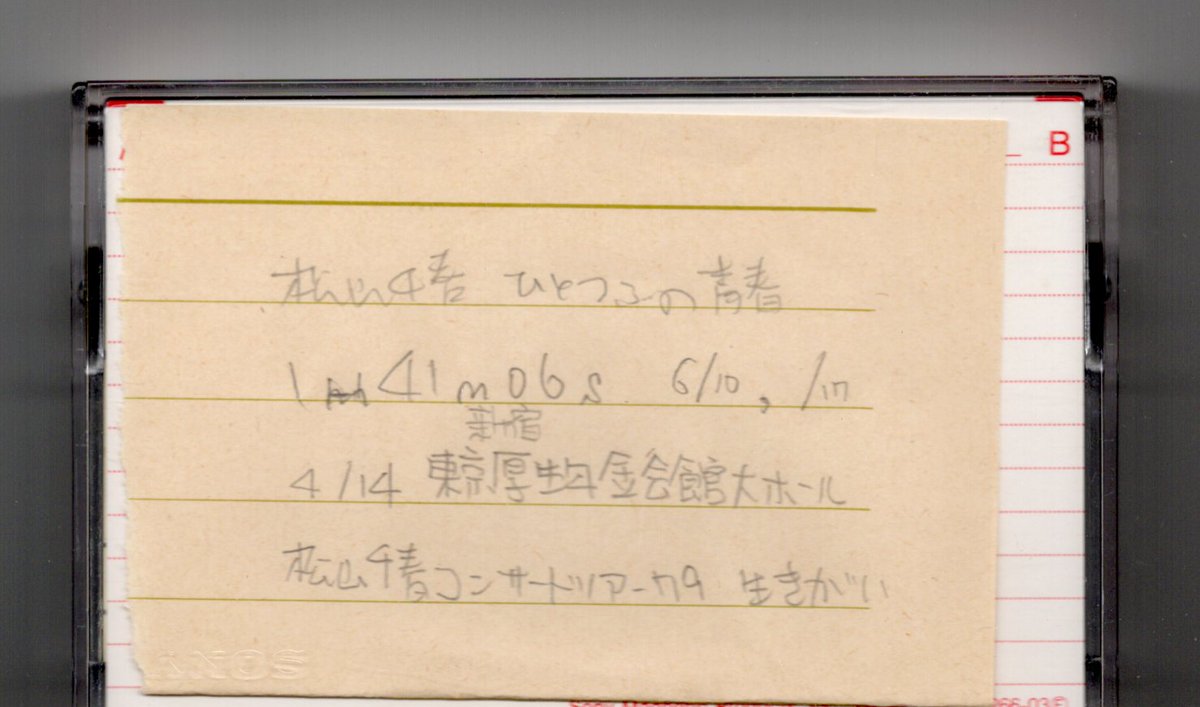 B
松山千春 ひとつぶの青春
1h41m06s 6/10, /17
新宿
4/14 東京厚生年金会館大ホール
松山千春コンサートツアー79 生きがい
SONY